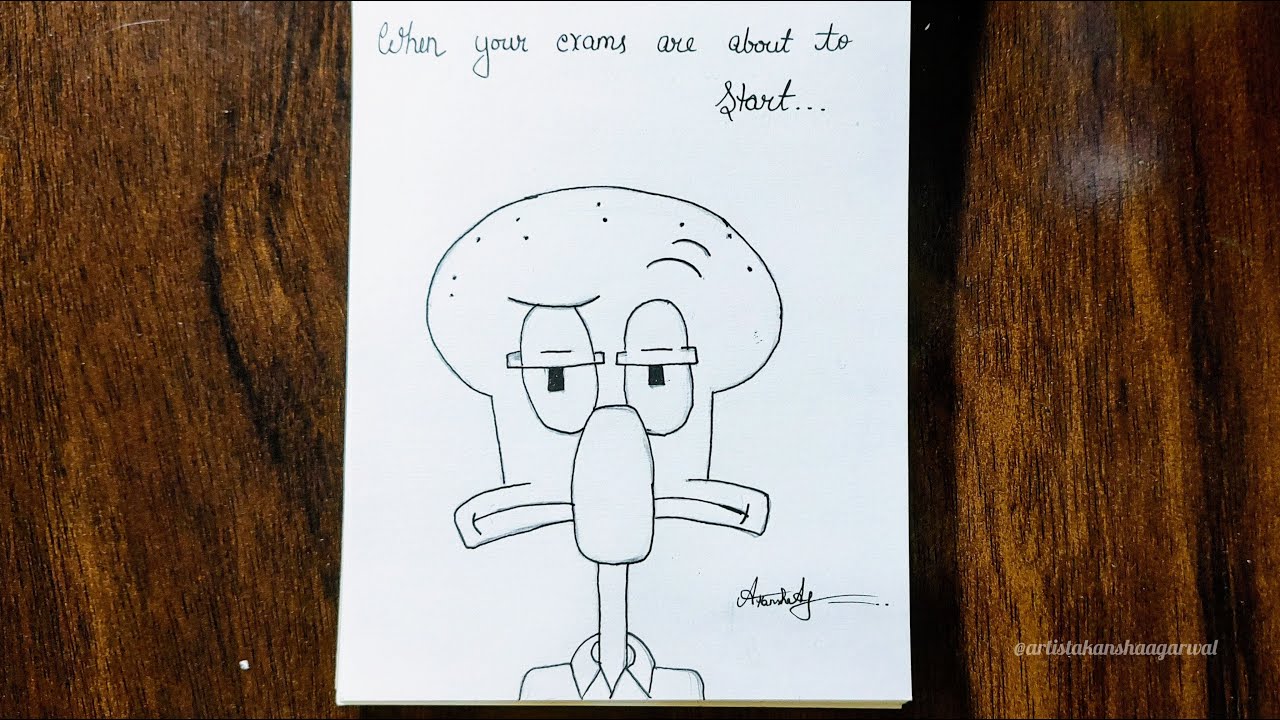 When your exams are about to
Start...
@artistakanshaagarwal